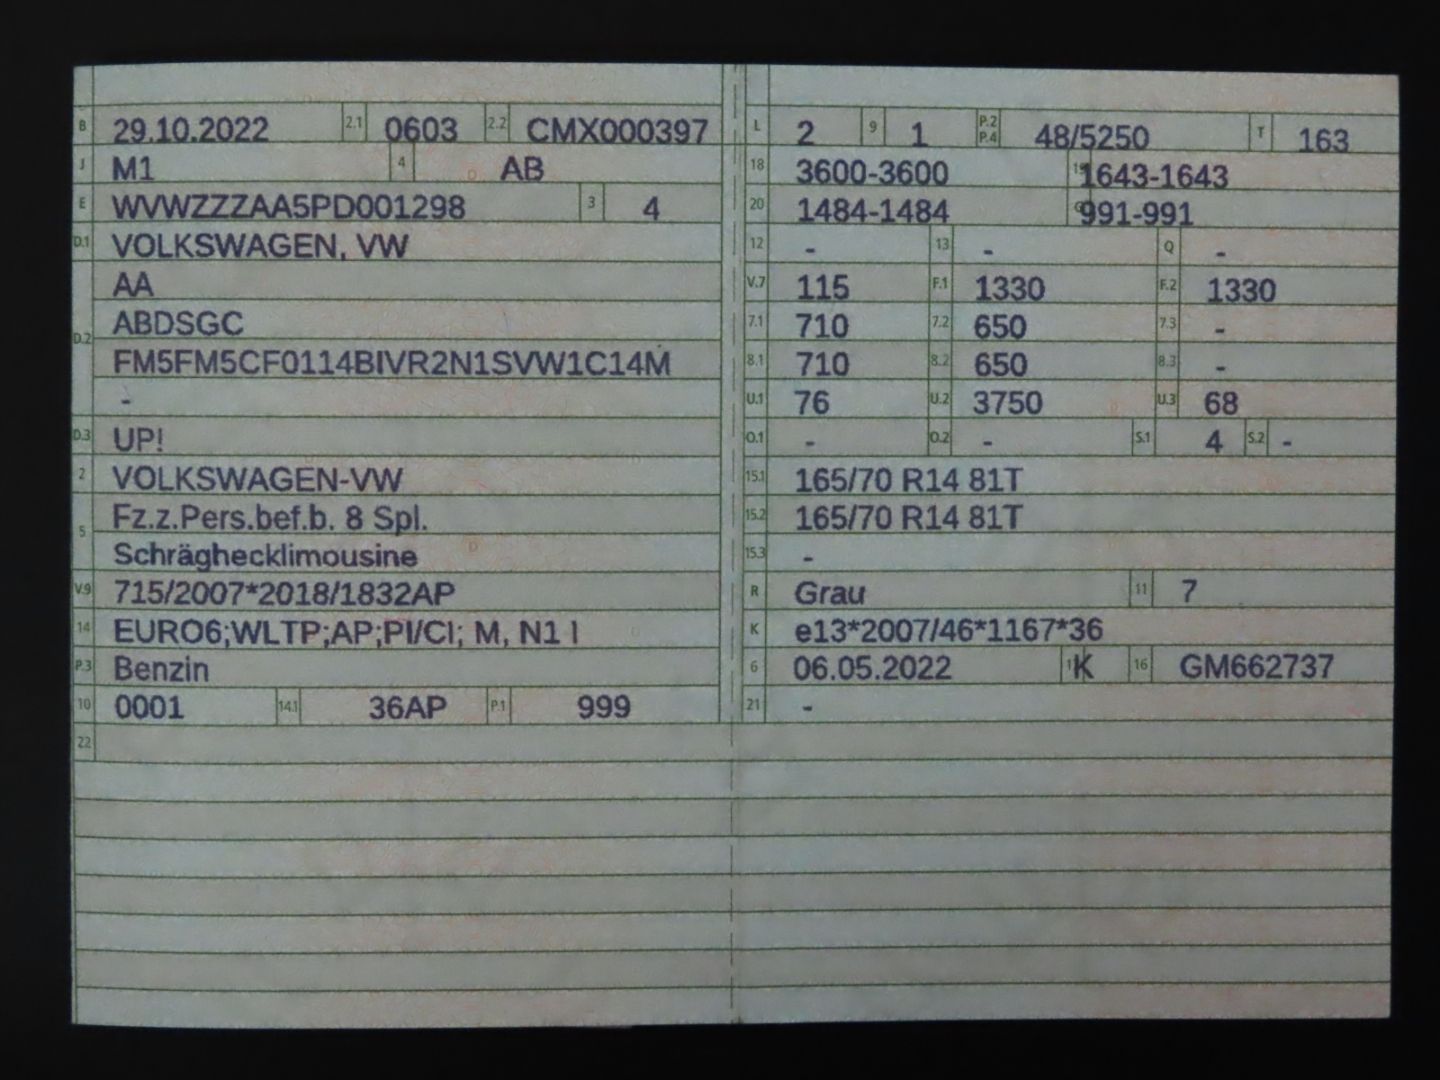 B 29.10.2022 2.1 0603 2.2 CMX000397
J M1 4 AB
E WVWZZZAA5PD001298 3 4
D.1 VOLKSWAGEN, VW
AA
D.2 ABDSGC
FM5FM5CF0114BIVR2N1SVW1C14M
-
D.3 UP!
2 VOLKSWAGEN-VW
5 Fz.z.Pers.bef.b. 8 Spl.
Schräghecklimousine
V.9 715/2007*2018/1832AP
14 EURO6;WLTP;AP;PI/CI; M, N1 I
P.3 Benzin
10 0001 14.1 36AP P.1 999
22
L 2 9 1 P.2 P.4 48/5250 T 163
18 3600-3600 1643-1643
20 1484-1484 991-991
12 - 13 - Q -
V.7 115 F.1 1330 F.2 1330
7.1 710 7.2 650 7.3 -
8.1 710 8.2 650 8.3 -
U.1 76 U.2 3750 U.3 68
O.1 - O.2 - S.1 4 S.2 -
15.1 165/70 R14 81T
15.2 165/70 R14 81T
15.3 -
R Grau 11 7
K e13*2007/46*1167*36
6 06.05.2022 K 16 GM662737
21 -